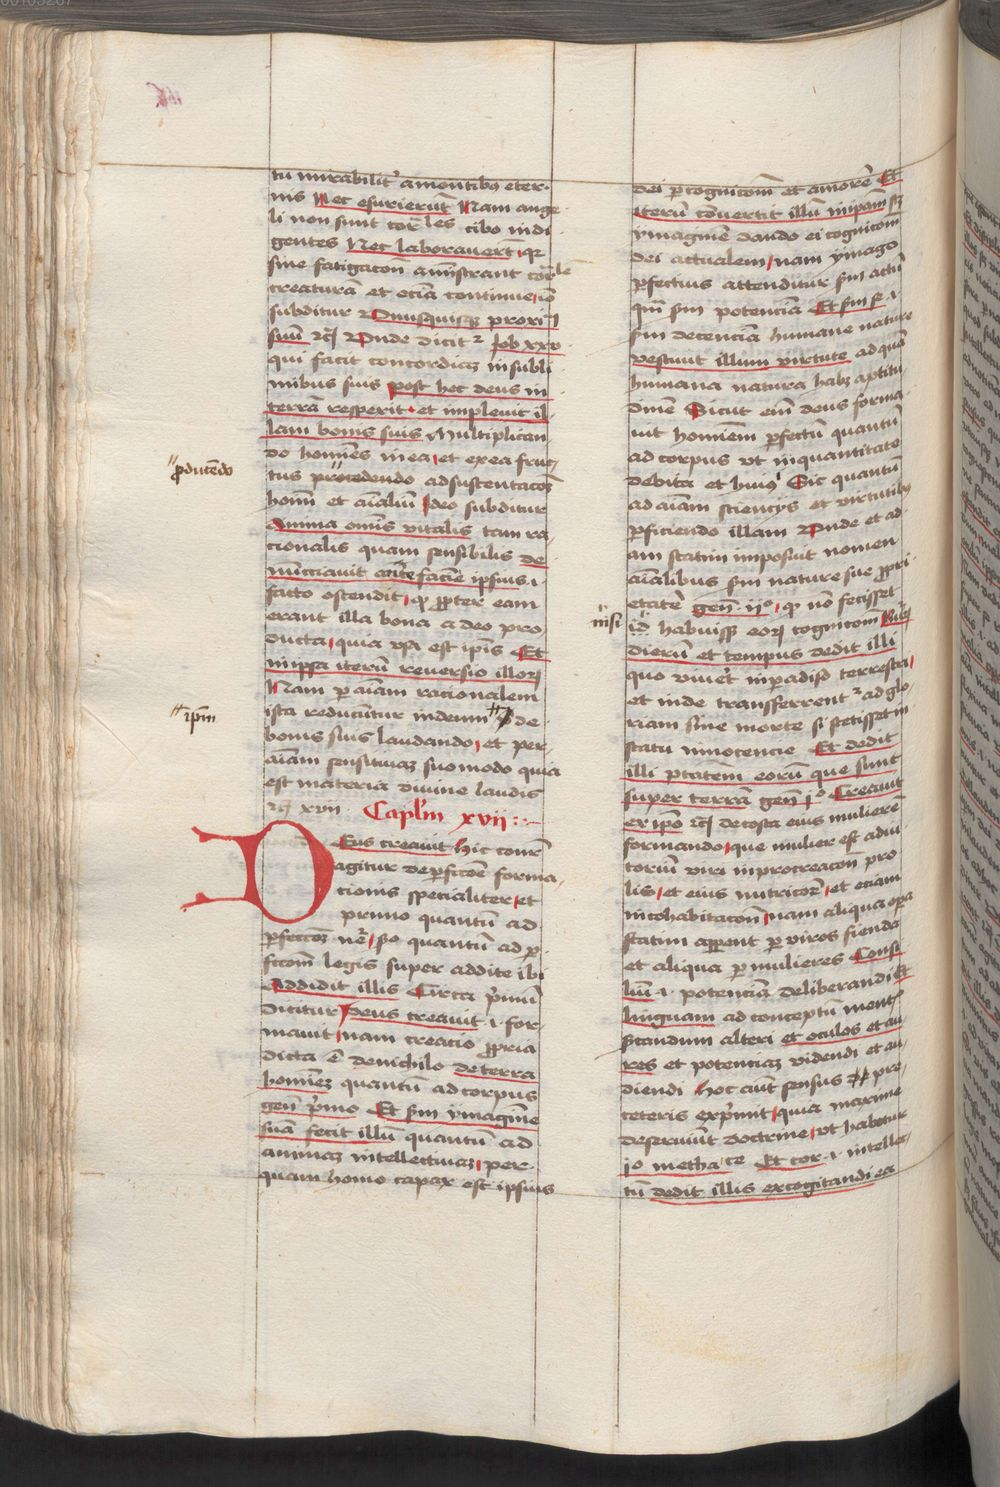 tu mirabiliter amontibus eter
nis Nec esurierūt Nam ange
li non sunt cor̄les cibo indi
gentes Nec laboraverūt qr
sine fatigacōn amīstrant cor̄lē
creaturā et eciā continue iō
subditur Unusquisqz proxi
mū rc̄ Unde dicit Job xxv
qui facit concordiaz insubli
mibus suis post hec deus in
terrā respexit et implevit il
lam bonis suis Multiplican
do homīes in ea et ex ea fruc
tus procedendo ad sustentacōz
homī et aīaliū Ideo subditur
Anima omīs vitalis tam ra
cionalis quam sensibilis de
nūcciavit ante faciē ipsius .i.
facto ostendit qp ppter eam
erant illa bona a deo pro
ducta quia usa est ipīs Et
in ipsa iterū reversio illorz
Nam p aīam racionalem
ista reducūtur in deum de
bonis suis laudando et per
aīam sensitivaz suo modo quia
est materia divine laudis
rc̄ xvii Caplm xvii
Deus creavit hic conr̄
agitur de pfcōe forma
cionis specialiter et
primo quantū ad
pfeccōz nē so quantū ad p
fccōm legis super addite ibi
Addidit illis Circa pīmū
dicitur Deus creavit .i. for
mavit nam creacio ppria
dicta ē de nichilo de terra
homīez quantū ad corpus
gen̄ pīmo Et sm ymagīne
suā fecit illū quantū ad
animaz intellectivaz per
quam homo capax est ipsius
pducēdo
ipm
dei p cognicōm et amorē Et
iterū cōvertit illū in ipam sz
ymaginē dando ei cognicōm
dei actualem nam ymago
pfectius attenditur sm actū
qm̄ sm potenciā Et sm se .i.
sm decenciā humane nature
vestivit illum virtute ad quā
humana natura habz aptitu
dinē Sicut eīm deus forma
vit homīem pfectū quantū
ad corpus ut in quantitate
debita et huiq Sic quantū
ad aīam scienciis et virtutibus
pficiendo illam Unde et ad
am statim imposuit nomen
aīalibus sm nature sue ppri
etatē gen̄ iio qp nō fecisset
id habuissz eorz cognicōm Nūerz
dierū et tempus dedit illi
quo viveret in padiso terrestri
et inde transferrent ad glo
riam sine morte si stetisset in
statu innocencie Et dedit
illi ptātem eorū que sunt
super terrā gen̄ io Creavit
ex ipo rc̄ de costa eius mulierē
formando que mulier est adiu
toriū viri in procreacōn pro
lis et eius nutricōe et eciam
in cohabitacōn nam aliqua opa
statim appent p viros fienda
et aliqua p mulieres Consi
liū .i. potenciā deliberandi Et
linguam ad conceptū ment
pandum alteri et oculos et au
res et potencias videndi et au
diendi hoc aūt sensus pre
ceteris exprīnt quia maxime
deserviūt doctrine ut habetur
io metha ce Et cor .i. intellec
tū dedit illis excogitandi ea
nisi